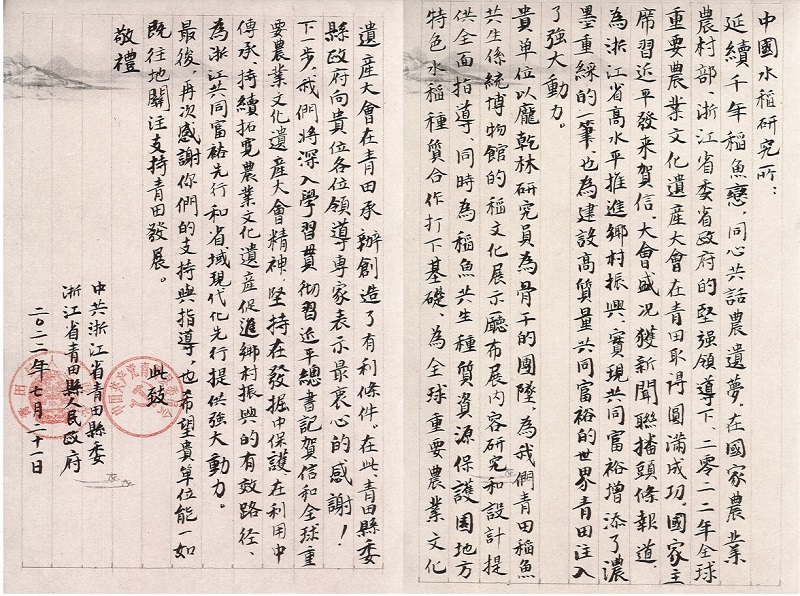 中國水稻研究所：
延續千年稻魚戀，同心共話農遺夢。在國家農業
農村部、浙江省委省政府的堅强領導下，二零二二年全球
重要農業文化遺産大會在青田取得圓滿成功。國家主
席習近平發来賀信，大會盛况獲新聞聯播頭條報道，
為浙江省高水平推進鄉村振興、實現共同富裕增添了濃
墨重綵的一筆，也為建設高質量共同富裕的世界青田注入
了强大動力。
貴單位以龐乾林研究員為骨干的團隊，為我們青田稻魚
共生係統博物館的稻文化展示廳布展内容研究和設計提
供全面指導，同時為稻魚共生種質資源保護園地方
特色水稻種質合作打下基礎，為全球重要農業文化
遺産大會在青田承辦創造了有利條件。在此，青田縣委
縣政府向貴位各位領導專家表示最衷心的感謝！
下一步，我們將深入學習貫彻習近平總書記賀信和全球重
要農業文化遺産大會精神，堅持在發掘中保護、在利用中
傳承，持續拓寬農業文化遺産促進鄉村振興的有效路径、
為浙江共同富裕先行和省域現代化先行提供强大動力。
最後，再次感謝你們的支持與指導，也希望貴單位能一如
既往地關注支持青田發展。
此致
敬禮
中共浙江省青田縣委
浙江省青田縣人民政府
二〇二二年七月二十一日